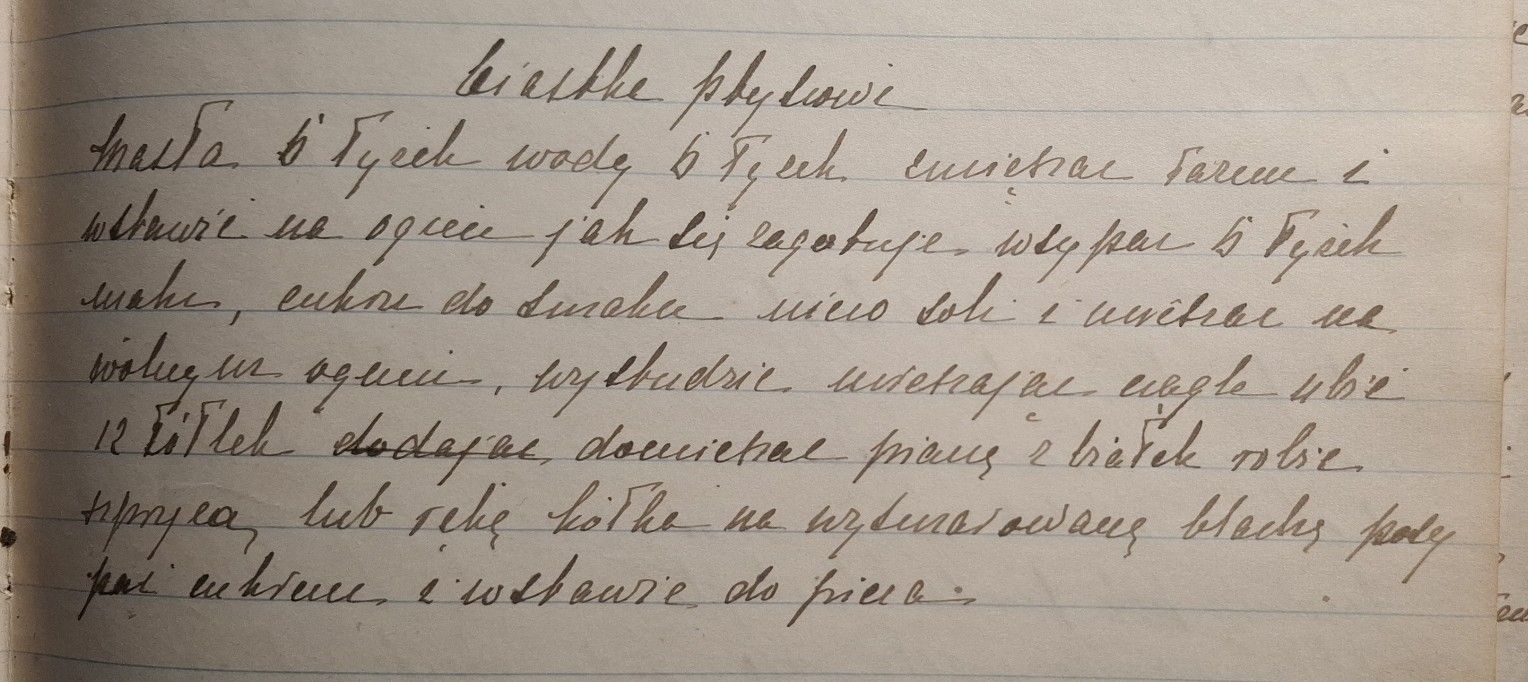 Ciastka ptysiowe
Masła 5 łyżek wody 5 łyżek zmieszać razem i
wstawić na ogień jak się zagotuje wsypać 5 łyżek
mąki, cukru do smaku nieco soli i mieszać na
wolnym ogniu, wystudzić mieszając ciągle ubić
12 żółtek dodając domieszać pianę z białek robić
szprycą lub ręką kółka na wysmarowaną blachę posy
pać cukrem i wstawić do pieca.